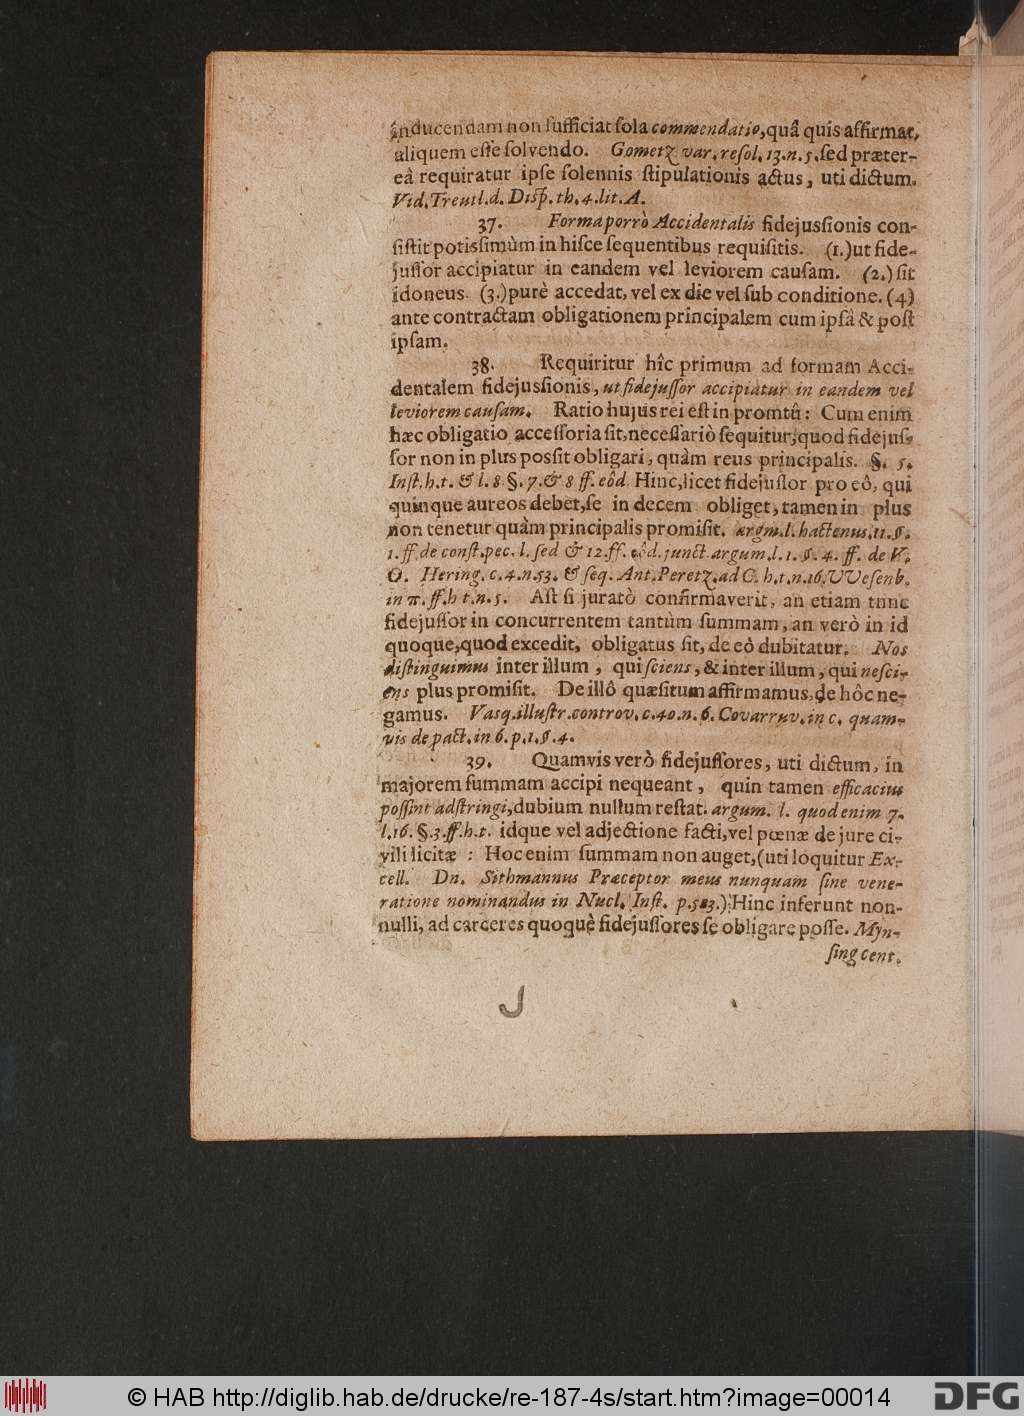 inducendam non ſufficiat ſola commendatio, quâ quis affirmat,
aliquem eſſe ſolvendo. Gometz var. reſol. 13. n. 5. ſed præter-
eâ requiratur ipſe ſolennis ſtipulationis actus, uti dictum.
Vid. Treutl. d. Diſp. th. 4. lit. A.
37. Forma porrò Accidentalis fidejuſſionis con-
ſiſtit potiſſimùm in hiſce ſequentibus requiſitis. (1.) ut fide-
juſſor accipiatur in eandem vel leviorem cauſam. (2.) ſit
idoneus. (3.) purè accedat, vel ex die vel ſub conditione. (4)
ante contractam obligationem principalem cum ipſâ & poſt
ipſam.
38. Requiritur hîc primum ad formam Acci-
dentalem fidejuſſionis, ut fidejuſſor accipiatur in eandem vel
leviorem cauſam. Ratio hujus rei eſt in promtû: Cum enim
hæc obligatio acceſſoria ſit, neceſſariò ſequitur, quod fidejuſ-
ſor non in plus poſſit obligari, quàm reus principalis. §. 5.
Inſt. h. t. & l. 8 §. 7. & 8 ff. eôd. Hinc, licet fidejuſſor pro eô, qui
quinque aureos debet, ſe in decem obliget, tamen in plus
non tenetur quàm principalis promiſit. argm. l. hactenus. 11. §.
1. ff. de conſt. pec. l. ſed & 12. ff. eôd. junct. argum. l. 1. §. 4. ff. de V.
O. Hering. c. 4. n. 53. & ſeq. Ant. Peretz. ad C. h. t. n. 16. VVeſenb.
in π. ff. h t. n. 5. Aſt ſi juratò confirmaverit, an etiam tunc
fidejuſſor in concurrentem tantùm ſummam, an verò in id
quoque, quod excedit, obligatus ſit, de eò dubitatur. Nos
diſtinguimus inter illum, qui ſciens, & inter illum, qui neſci-
ens plus promiſit. De illô quæſitum affirmamus, de hôc ne-
gamus. Vasq. illuſtr. controv. c. 40. n. 6. Covarruv. in c. quam-
vis de pact. in 6. p. 1. §. 4.
39. Quamvis verò fidejuſſores, uti dictum, in
majorem ſummam accipi nequeant, quin tamen efficacius
poſſint adſtringi, dubium nullum reſtat. argum. l. quod enim 7.
l. 16. §. 3. ff. h. t. idque vel adjectione facti, vel pœnæ de jure ci-
vili licitæ: Hoc enim ſummam non auget, (uti loquitur Ex-
cell. Dn. Sithmannus Præceptor meus nunquam ſine vene-
ratione nominandus in Nucl. Inſt. p. 583.) Hinc inferunt non-
nulli, ad carceres quoquè fidejuſſores ſe obligare poſſe. Myn-
ſing cent.
© HAB http://diglib.hab.de/drucke/re-187-4s/start.htm?image=00014
DFG